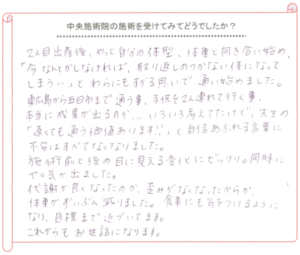 中央施術院の施術を受けてみてどうでしたか？
2人目出産後、やっと自分の体型、体重と向き合い始め、
「今なんとかしなければ、取り返しのつかない体になって
しまう…」とわらにもすがる思いで通い始めました。
東広島から五日市まで通う事、子供を2人連れて行く事、
本当に成果が出るのか…いろいろ考えてたけど、先生の
「遠くても通う価値あります!」と自信あふれる言葉に
不安はすべてなくなりました。
施術前と後の目に見える変化にビックリ。同時に
やる気が出ました。
代謝が良くなったのか、歪みがなくなったからか、
体重がずいぶん減りました。食事にも気をつけるように
なり、目標まで近づいてます。
これからもお世話になります。